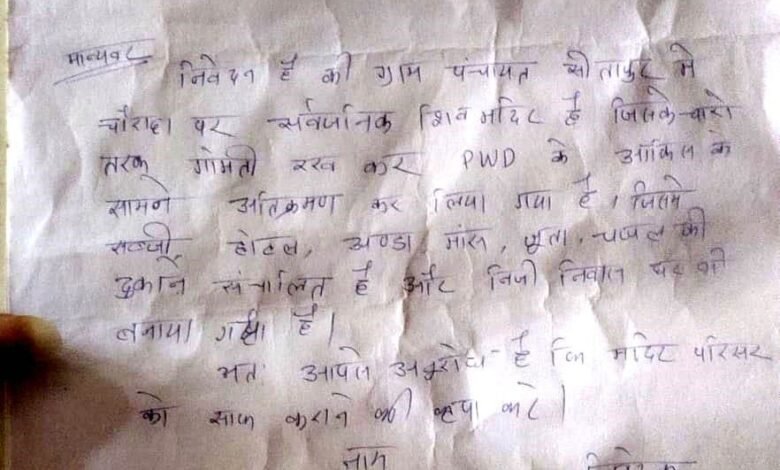 मान्यवर
निवेदन है की ग्राम पंचायत सीतापुर मे
चौराहा पर सर्वजनिक शिव मंदिर है जिसके चारो
तरफ गोमती रख कर PWD के ऑफिस के
सामने अतिक्रमण कर लिया गया है। जिसमे
सब्जी, होटल, अण्डा मांस, जूता, चप्पल की
दुकाने संचालित है और निजी निवास घर भी
बनाया गया है।
अतः आपसे अनुरोध है कि मंदिर परिसर
को साफ कराने की कृपा करे।
नाम